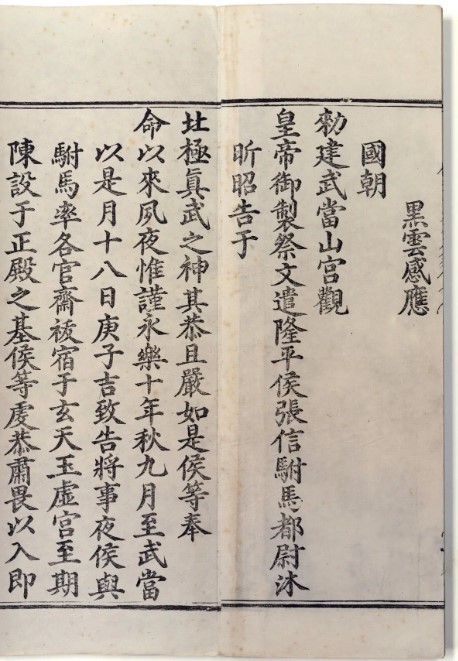 黑雲感應
國朝
勑建武當山宮觀
皇帝御製祭文遣隆平侯張信駙馬都尉沐
昕昭告于
北極眞武之神其恭且嚴如是侯等奉
命以來夙夜惟謹永樂十年秋九月至武當
以是月十八日庚子吉致告將事夜侯與
駙馬率各官齋祓宿于玄天玉虛宮至期
陳設于正殿之基侯等虔恭肅畏以入即